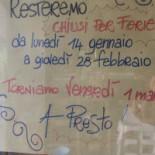 RESTEREMO
CHIUSI PER FERIE
da lunedì 14 gennaio
a giovedì 28 febbraio
TORNIAMO VENERDÌ 1 mar
A PRESTO